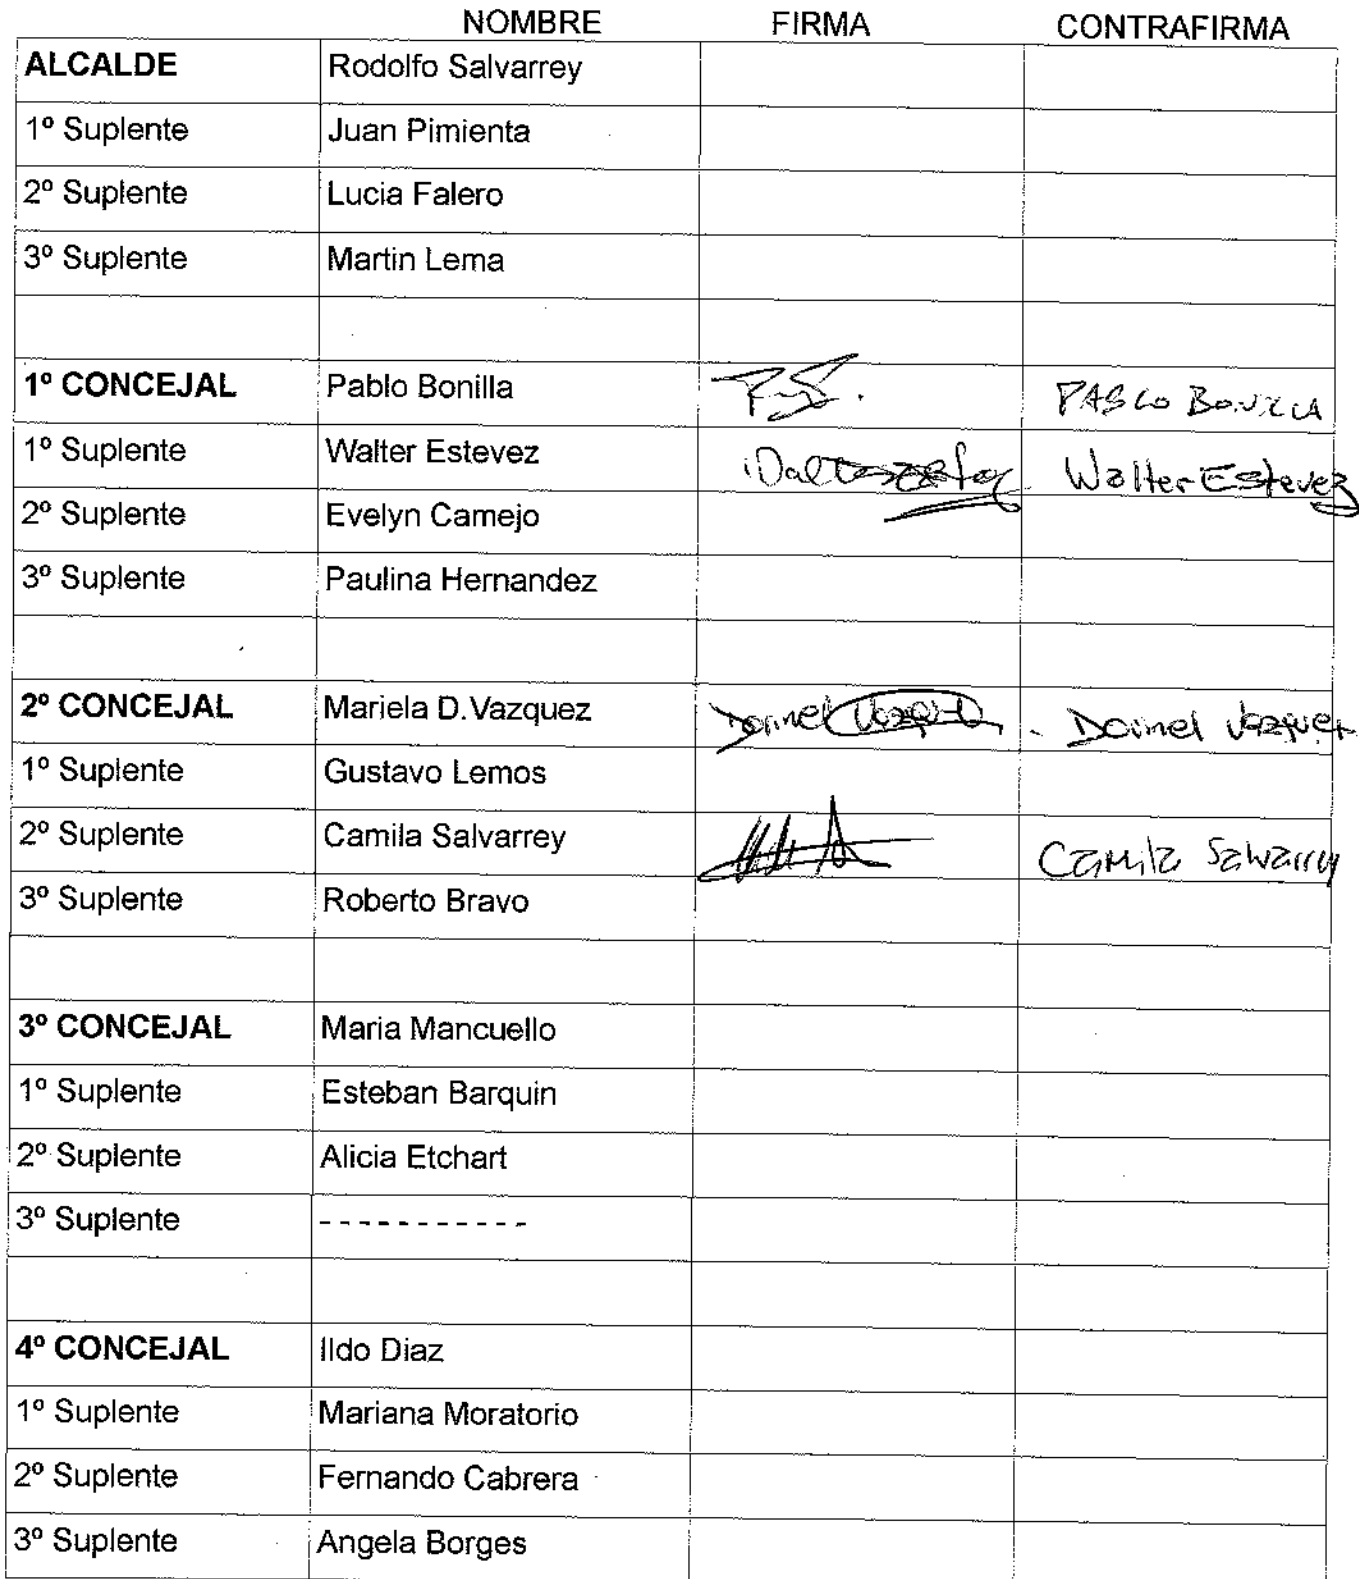 NOMBRE FIRMA CONTRAFIRMA
ALCALDE Rodolfo Salvarrey
1º Suplente Juan Pimienta
2º Suplente Lucia Falero
3º Suplente Martin Lema
1º CONCEJAL Pablo Bonilla PABLO BONILLA
1º Suplente Walter Estevez Walter Estevez
2º Suplente Evelyn Camejo
3º Suplente Paulina Hernandez
2º CONCEJAL Mariela D.Vazquez Dorinel Vazquez . Dorinel Vazquez
1º Suplente Gustavo Lemos
2º Suplente Camila Salvarrey Camila Salvarrey
3º Suplente Roberto Bravo
3º CONCEJAL Maria Mancuello
1º Suplente Esteban Barquin
2º Suplente Alicia Etchart
3º Suplente -----------
4º CONCEJAL Ildo Diaz
1º Suplente Mariana Moratorio
2º Suplente Fernando Cabrera
3º Suplente Angela Borges